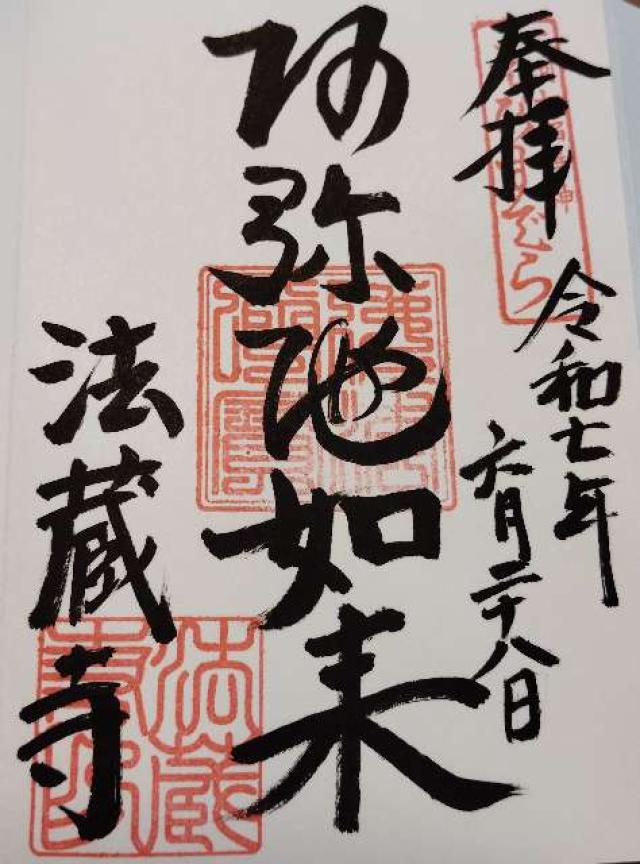 奉拝
令和七年
六月二十八日
阿弥陀如来
法蔵寺
法蔵寺印